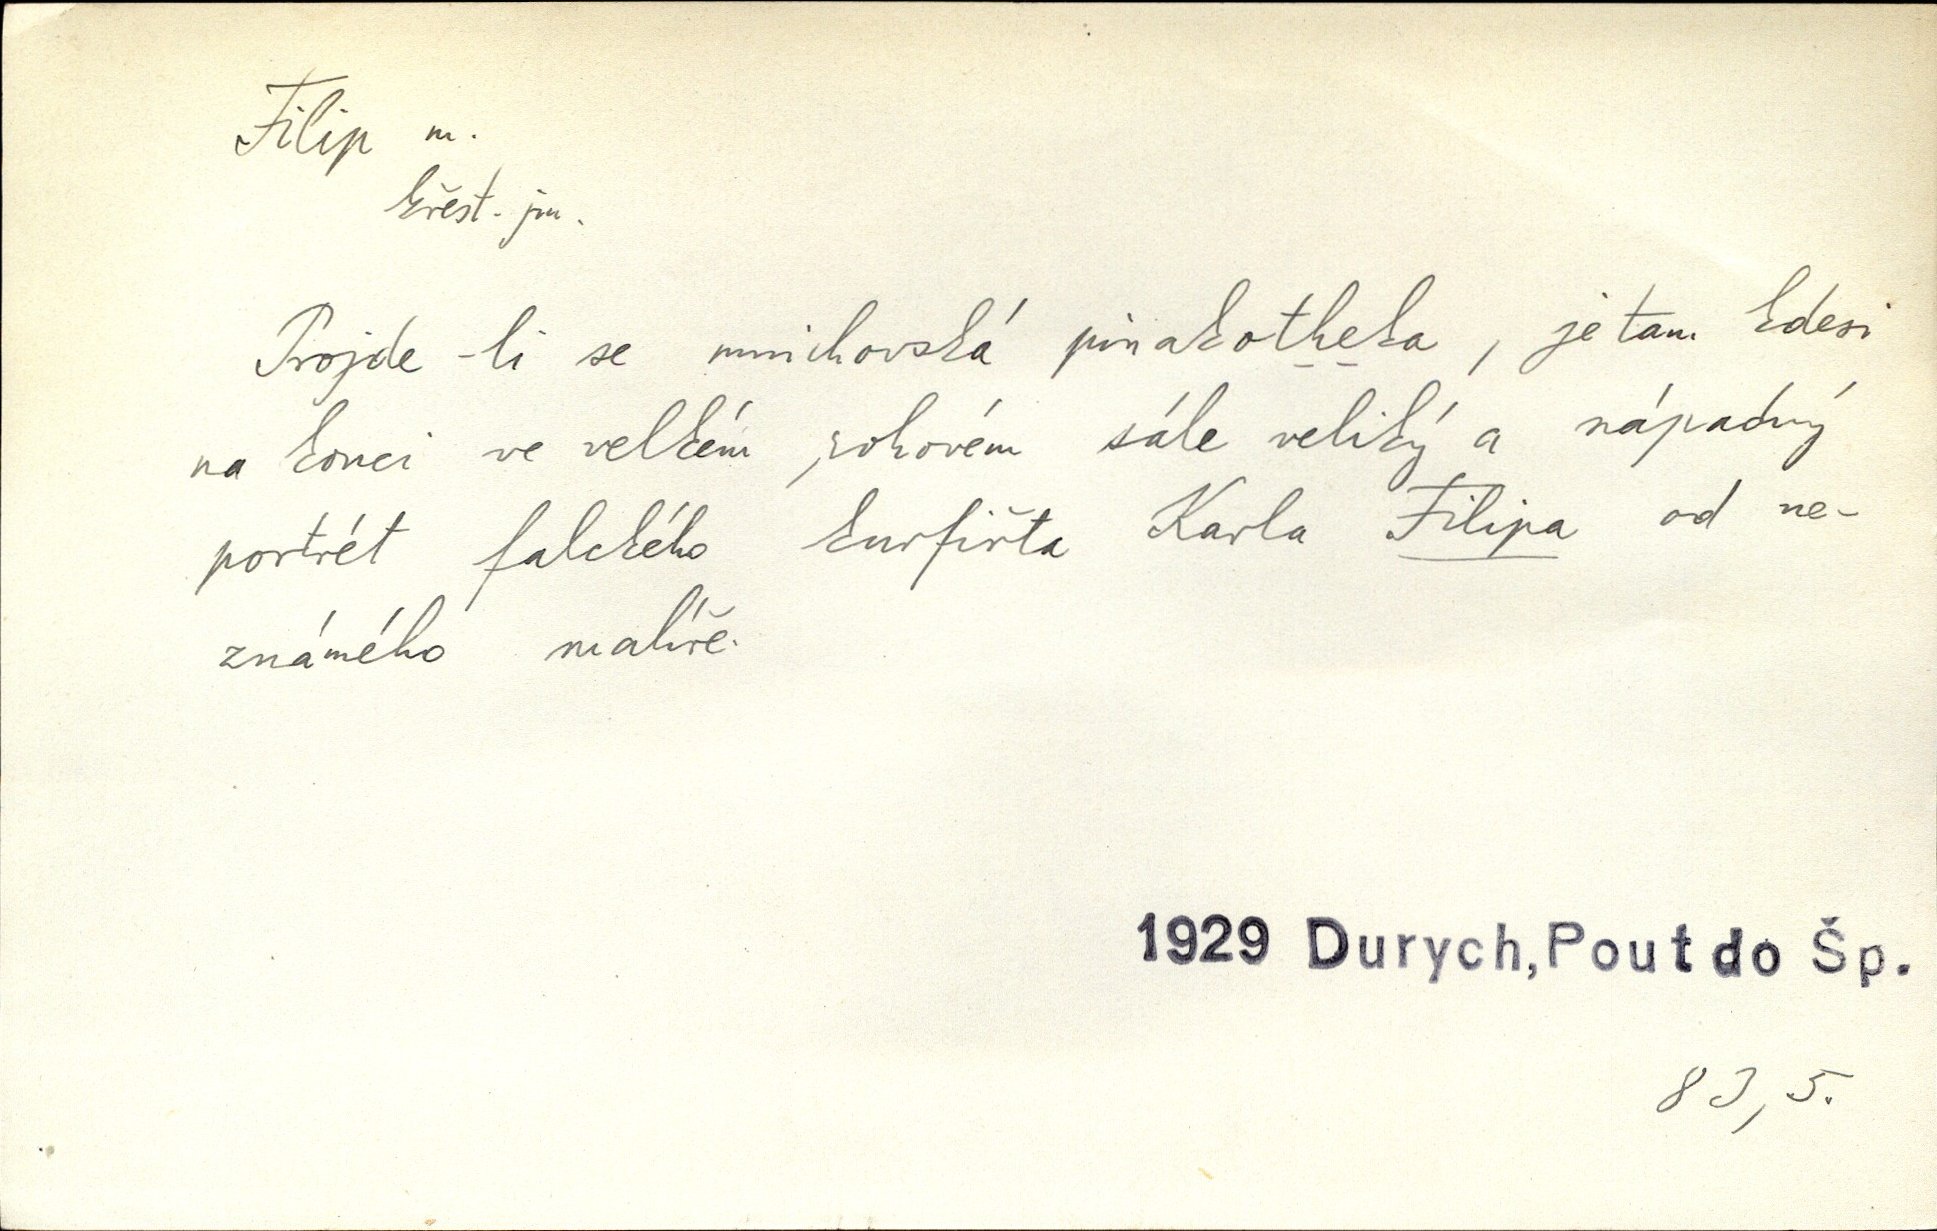 Filip m.
křest. jm.
Projde-li se mnichovská pinakotheka, je tam kdesi
na konci ve velkém rohovém sále veliký a nápadný
portrét falckého kurfiřta Karla Filipa od ne-
známého malíře.
1929 Durych, Pout do Šp.
83, 5.